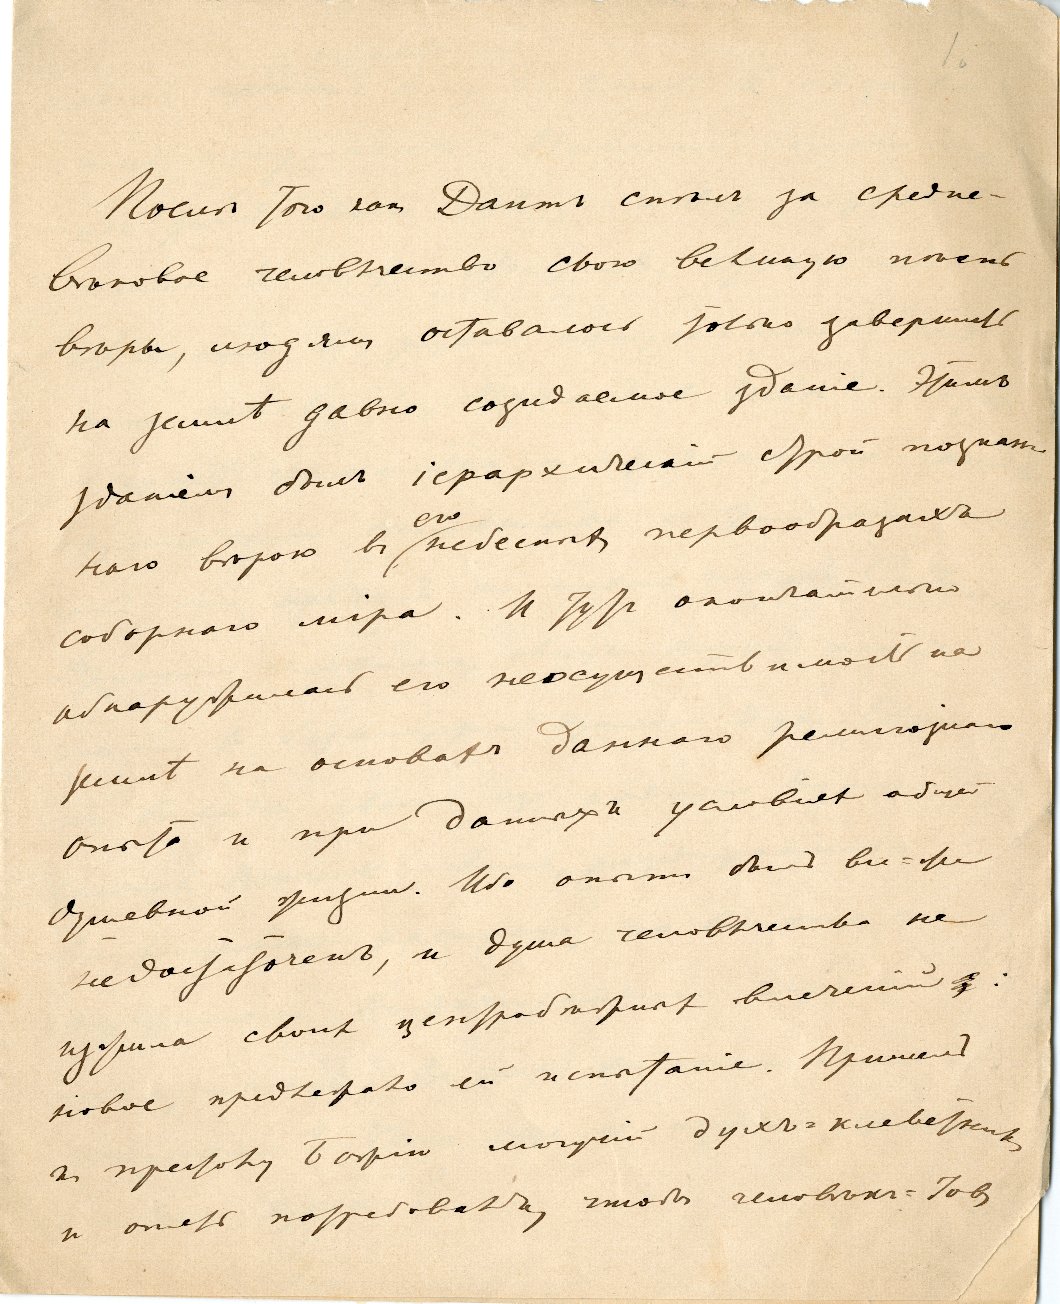 1.
Послѣ того какъ Дантъ спѣлъ за средне-
вѣковое человѣчество свою великую пѣснь
вѣры, людямъ оставалось только завершить
на землѣ давно созидаемое зданіе. Этимъ
зданіемъ былъ іерархическій строй познан-
наго вѣрою въ его небесныхъ первообразахъ
соборнаго міра. И тутъ окончательно
обнаружилась его неосуществимость на
землѣ на основахъ даннаго религіознаго
опыта и при данныхъ условіяхъ общей
душевной жизни. Ибо опытъ былъ все-же
недостаточенъ, и душа человѣчества не
изжила своихъ центробѣжныхъ влеченій:
новое предлежало ей испытаніе. Пришелъ
къ престолу Божію могучій духъ-клеветникъ
и опять потребовалъ, чтобы человѣкъ-Іовъ